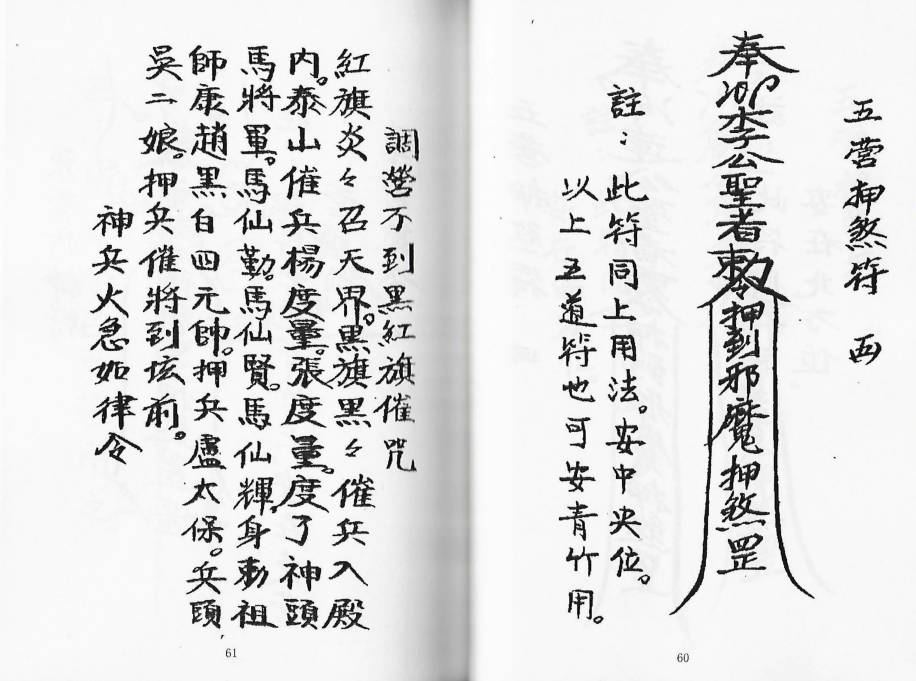 五營押煞符
奉李公聖者敕令押到邪魔押煞罡
註：此符同上用法。安中央位。
以上五道符也可安青竹用。
60
調營不到黑紅旗催咒
紅旗炎々召天界。黑旗黑々催兵入殿
內。泰山催兵楊度量。張度量。度了神頭
馬將軍。馬仙勤。馬仙賢。馬仙輝。身勅祖
師康趙黑白四元帥。押兵盧太保。兵頭
吳二娘。押兵催將到坛前。
神兵火急如律令
61